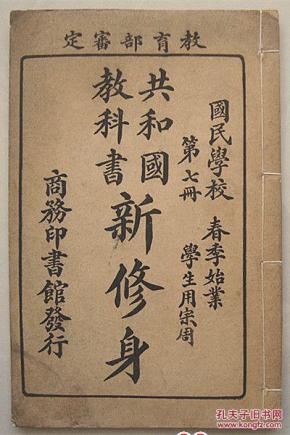 教育部審定
國民學校 春季始業
第七冊 學生用宗周
共和國
教科書
新修身
商務印書館發行
孔夫子旧书网
kongfz.com